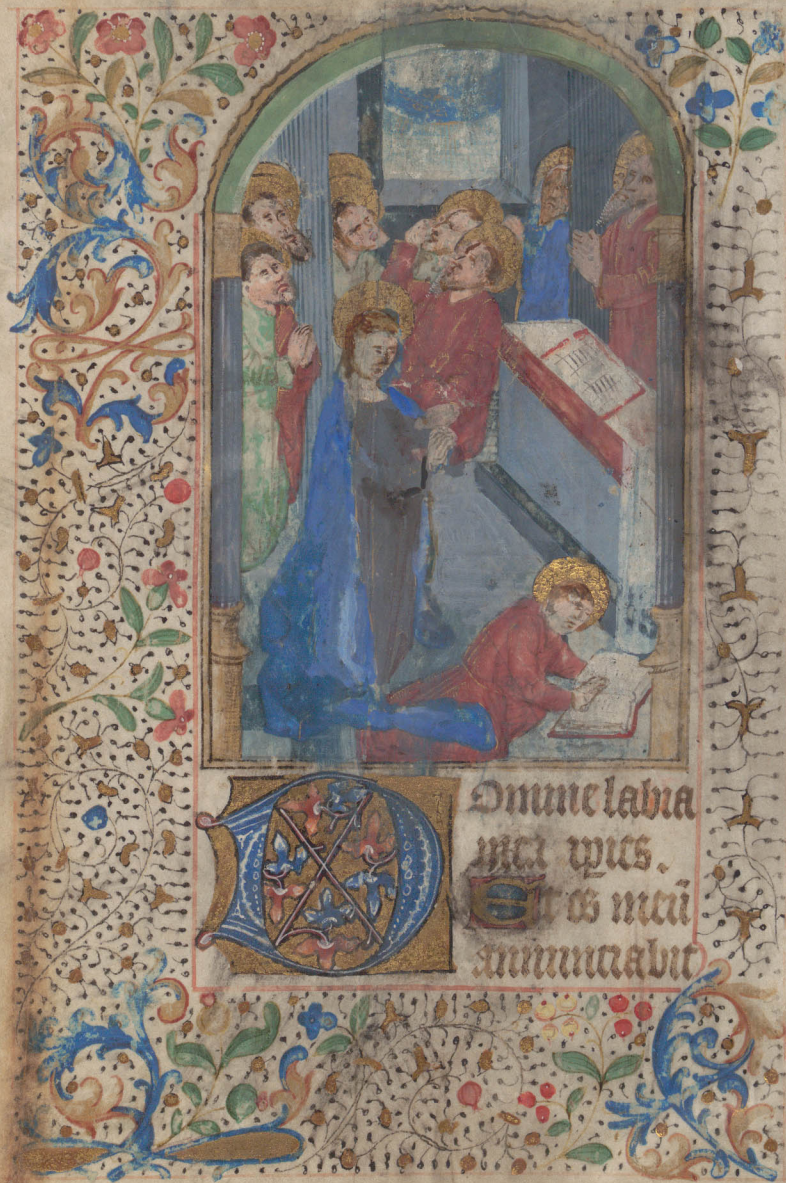 Domine labia
mea ap̄ies.
Et os meū
annunciabit